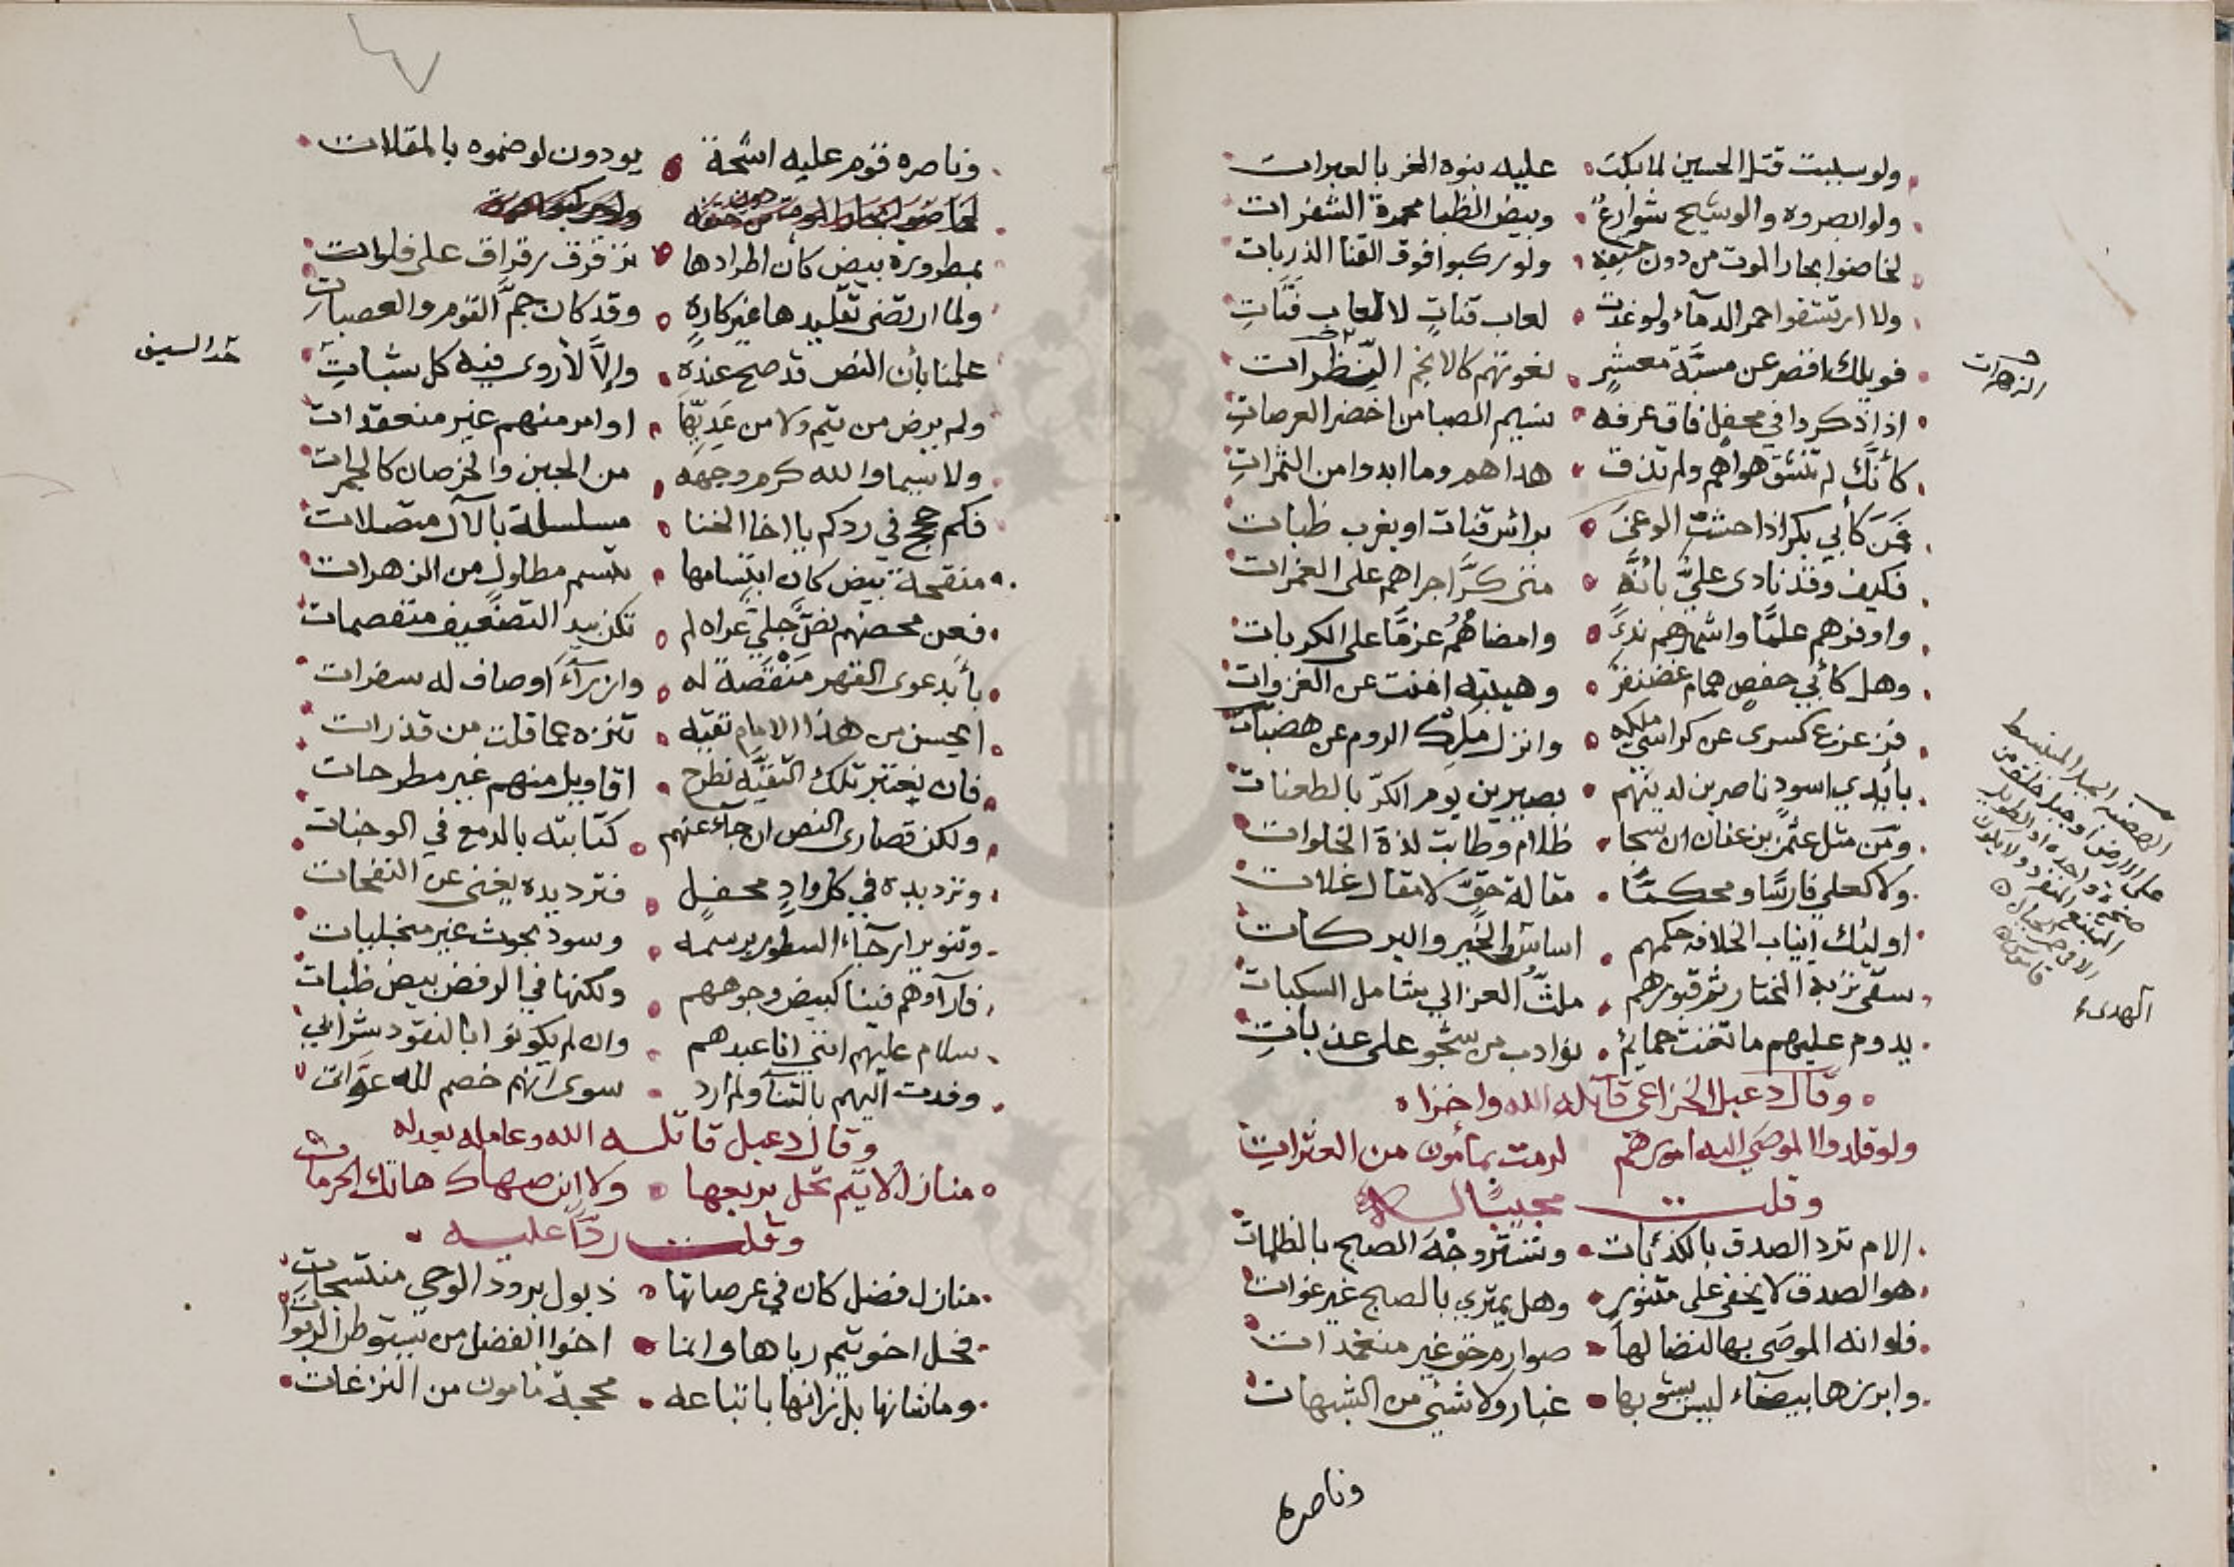 ولو سببت قتل الحسين لما بكت عليه بنوه الغر بالعبرات
ولو ابصروه والوشيج شوارعٌ وبيض الظبا محمرة الشفرات
لخاضوا بحار الموت من دون حتفه ولو ركبوا فوق القنا الذربات
ولا ارتشفوا حمر الدمآء ولو غدت لعاب قناتٍ لا لعاب فتاتِ
فويلك اقصر عن مسبَّة معشرٍ نعوتهم كالانجم النضرات
الزهرات
اذا ذكروا في محفلٍ فاق عرفه نسيم الصبا من اخضر العرصاتِ
كأنَّك لم تنشق هواهم ولم تذق هداهم وما ابدوا من الثمراتِ
فمَن كأبي بكر اذا حشت الوغى براس قنات او بغرب ظبات
فكيف وقد نادى عليٌّ بأنَّه متى كرَّ اجراهم على الغمرات
واوفرهم علمًا واشهرهم ندىً وامضاهُمُ عزمًا على الكربات
وهل كأبي حفصٍ همام غضنفرٌ وهيبته اغنت عن الغزوات
فزعزع كسرى عن كراسيّ ملكه وانزل ملك الروم عن هضبات
الهضبة الجبل المنبسط على الارض او جبل خلق من صخرة واحدة او الطويل الممتنع المنفرد ولا يكون الا في حمر الجبال قاموس
بأيدي اسودٍ ناصرين لدينهم بصيرين يوم الكرّ بالطعنات
ومَن مثل عثمن بن عفان ان سجا ظلام وطابت لذة الخلوات
ولا كعلي فارسًا ومحكمًا مقالة حقٍّ لا مقال غلات
اوليئك انياب الخلافه حكمهم اساس الخير والبركات
الهدى
سقى تربة المختار ثم قبورهم ملثُّ العزالي شامل السكبات
يدوم عليهم ما تغنت حمائمٌ نوادب من شجو على عذباتِ
وقال دعبل الخزاعي قاتله الله واخزاه
ولو قلدوا الموصى اليه امورهم لزمت بمأمون من العثراتِ
وقلت مجيبًا له
الام ترد الصدق بالكذبات وتستر وجه الصبح بالظلمات
هو الصدق لا يخفى على متنورٍ وهل يمترى بالصبح غير غوات
فلو انه الموصى بها لنضا لها صوارم حق غير منغمدات
وابرزها بيضآء ليس يشوبها غبار ولا شيئ من الشبهات
وناصره
وناصره قوم عليه اشحة يودون لو ضموه بالمقلات
بمطرورة بيض كأن اطرادها ترقرق رقراق على فلوات
ولما ارتضى تقليدها غير كارهٍ وقد كان جمَّ القوم والعصبات
علمنا بأن النص قد صح عنده وإلاَّ لأروى فيه كل شباتِ
حد السيف
ولم يرض من تيم ولا من عَديِّها اوامر منهم غير منعقدات
ولا سيما والله كرم وجهه من الجبن والخرصان كالجمرات
فكم حجج في ردكم يا اخا الخنا مسلسلة بالآل متصلات
منقحة بيض كان ابتسامها تبسم مطلول من الزهرات
فعن محضهم نصٌّ جليٌّ عراه لم تكن بيد التضعيف منفصمات
بأبد عوى القهر مَنْقَصَةً له وازرآءَ اوصاف له سفرات
ايحسن من هذا الامام تقيّه تنزه عما قلت من قذرات
فان يعتبر تلك التقيَّه نطرح اقاويل منهم غير مطرحات
ولكن قصارى النص ان جآء عنهم كتابته بالدمع في الوجنات
وترديده في كل وادٍ ومحفلٍ فترديده يغنى عن النفحات
وتنوير ارجآء السطور برسمه وسود بحوث غير منجليات
فآراوهم فينا كبيض وجوههم ولكنها في الرفض بيض ظبات
سلام عليهم انني انا عبدهم وان لم يكونوا بالنقود شراتي
وفدت اليهم بالثنآ ولم ارد سوى انهم خصم لله عوات
وقال دعبل قاتله الله وعامله بعدله
منازل لا تيم تحل بربعها ولا ابن صهاك هاتك الحرمات
وقلت ردًّا عليه
منازل فضل كان في عرصاتها ذيول برود الوحي منسحبات
فحل اخو تيم رباها وانما اخوا الفضل من يستوطن الربوات
وما شانها بل زانها باتباعه محجة مامون من النزغات